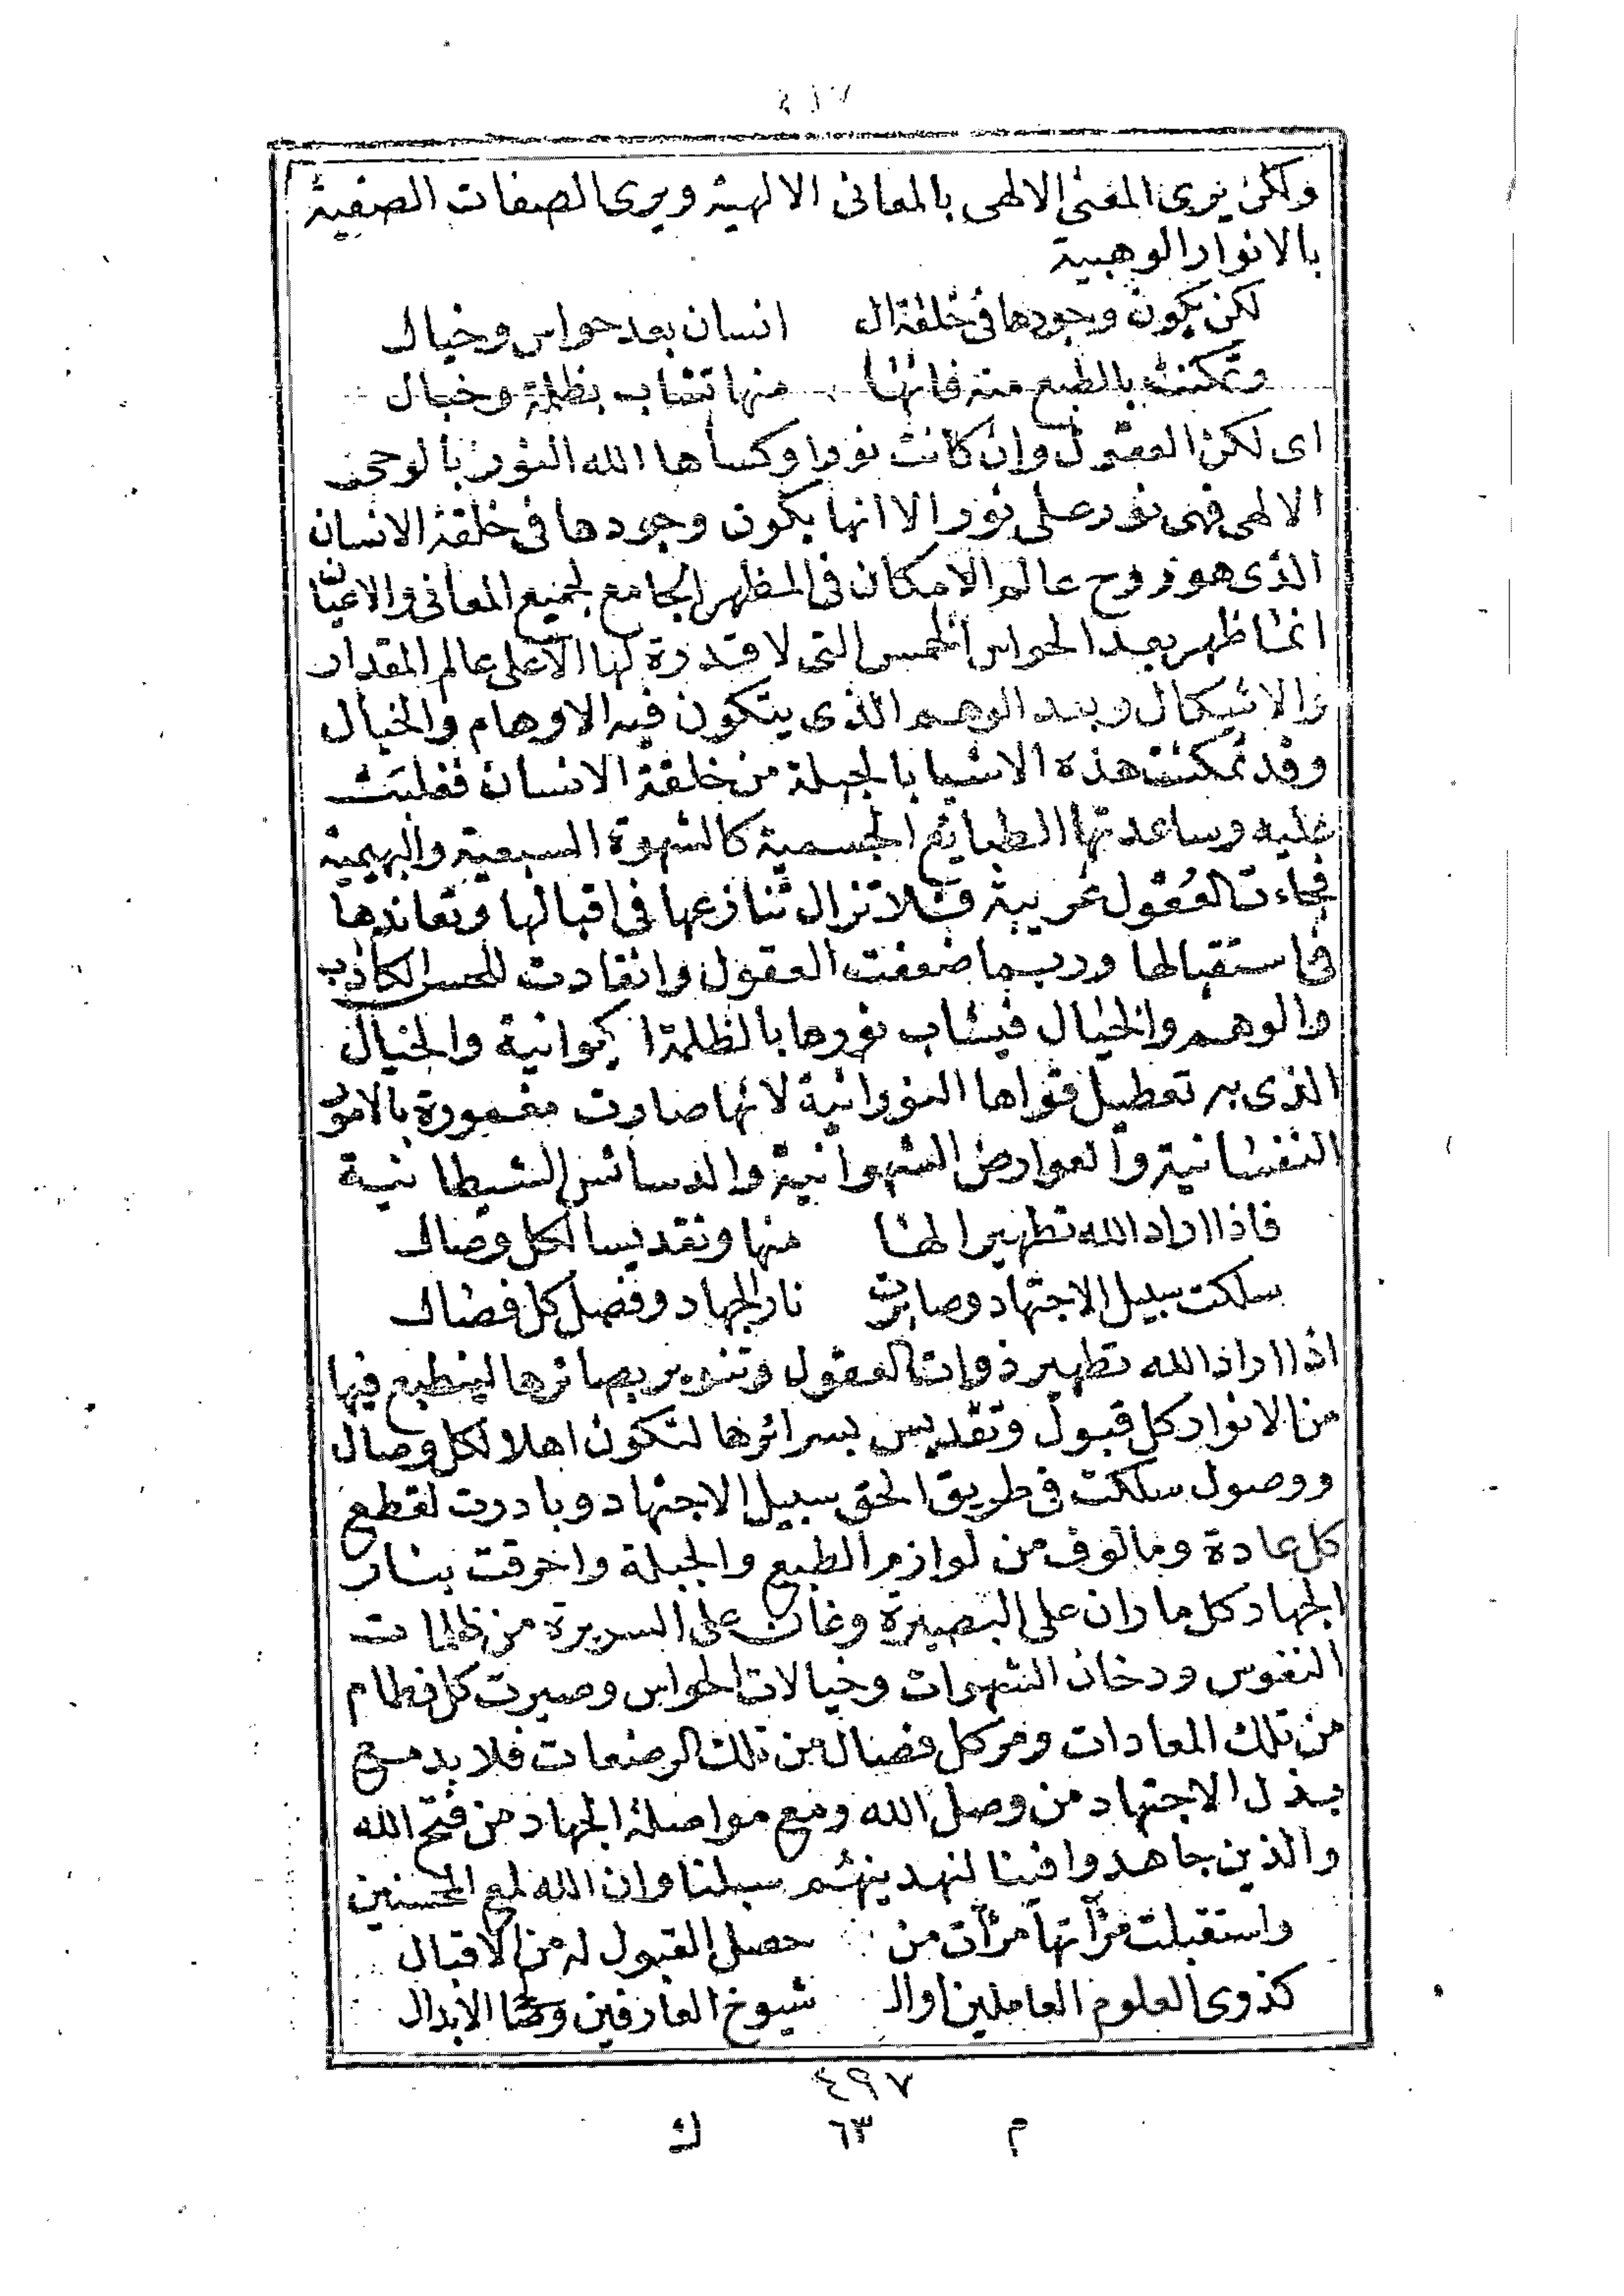 ٤٩٧
ولكن يرى المعنى الالهى بالمعانى الالهية ويرى الصفات الصفية
بالانوار الوهبية
لكن يكون وجودها فى خلقة ال انسان بعد حواس وخيال
وتمكنت بالطبع منه فانها منها تشاب بظلمة وخبال
اى لكن العقول وان كانت نورا وكساها الله النور بالوحى
الالهى فهى نور على نور الا انها يكون وجودها فى خلقة الانسان
الذى هو روح عالم الامكان فى المظهر الجامع لجميع المعانى والاعيان
انما ظهر بعد الحواس الخمس التى لا قدرة لها الا على عالم المقدار
والاشكال وبعد الوهم الذى يتكون فيه الاوهام والخيال
وقد تمكنت هذه الاشيا بالجبلة من خلقة الانسان فغلبت
عليه وساعدتها الطبايع الجسمية كالشهوة السبعية والبهيمية
فجاءت العقول غريبة فلا تزال تنازعها فى اقبالها وتعاندها
فى استقبالها وربما ضعفت العقول وانقادت للحس الكاذب
والوهم والخيال فيشاب نورها بالظلمة الحيوانية والخبال
الذى به تعطيل قواها النورانية لانها صارت مغمورة بالامور
النفسانية والعوارض الشهوانية والدسائس الشيطانية
فاذا اراد الله تطهيرا لها منها وتقديسا لكل وصال
سلكت سبيل الاجتهاد وصابرت نار الجهاد وفصل كل فصال
اذا اراد الله تطهير ذوات العقول وتنوير بصائرها لينطبع فيها
من الانوار كل قبول وتقديس بسرائرها لتكون اهلا لكل وصال
ووصول سلكت فى طريق الحق سبيل الاجتهاد وبادرت لقطع
كل عادة ومالوف من لوازم الطبع والجبلة واحرقت بنار
الجهاد كل ما ران على البصيرة وغان على السريرة من ظلمات
النفوس ودخان الشهوات وخيالات الحواس وصبرت كل فطام
من تلك المعادات ومر كل فصال من تلك الرضعات فلا بد مع
بذل الاجتهاد من وصل الله ومع مواصلة الجهاد من فتح الله
والذين جاهدوا فينا لنهدينهم سبلنا وان الله لمع المحسنين
واستقبلت مرآتها مرآت من حصل القبول له من الاقبال
كذوى العلوم العاملين او ال شيوخ العارفين الابدال
٤٩٧
م ٦٣ ك